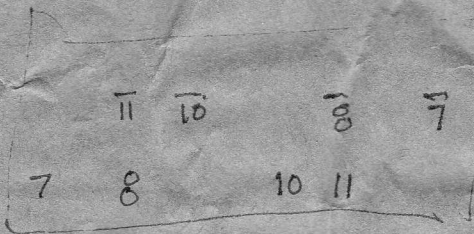 1̅1̅ 1̅0̅ 8̅ 7̅
7 8 10 11